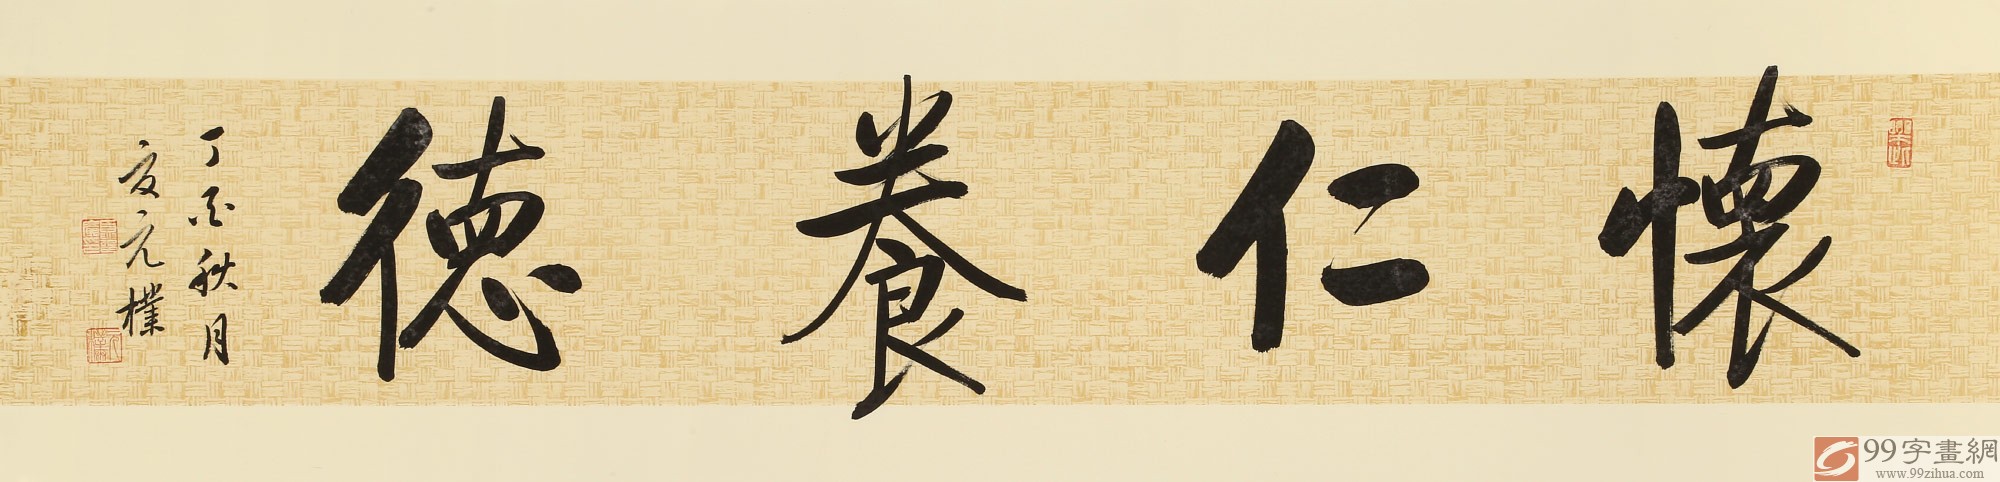 懷仁養德
丁酉秋月
友元樸
99字畫網
www.99zihua.com